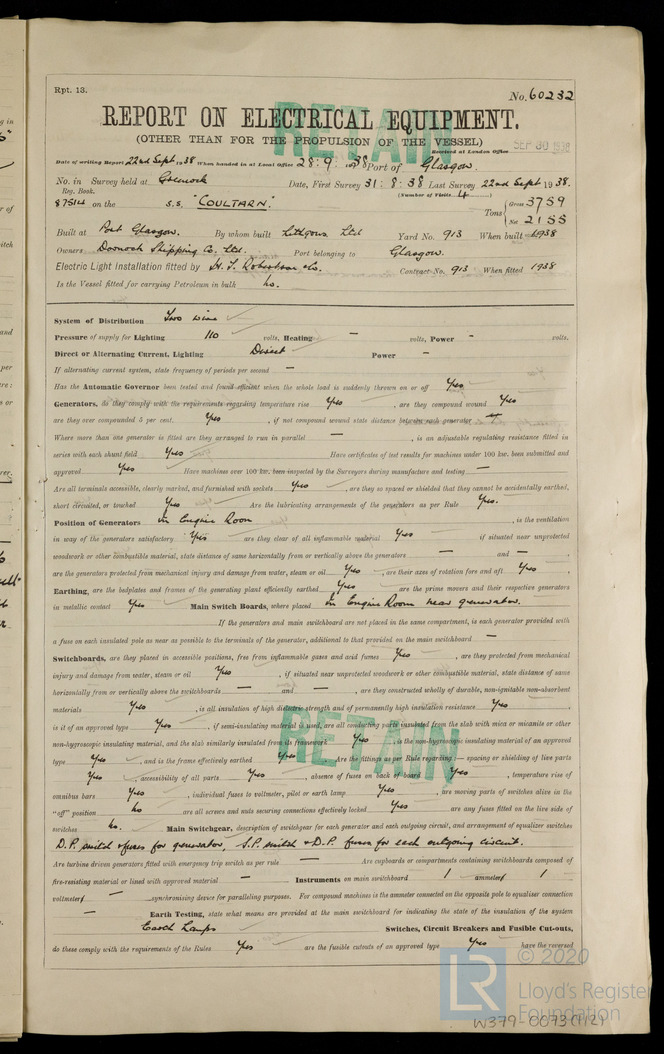 Rpt. 13.
No. 60232
REPORT ON ELECTRICAL EQUIPMENT.
(OTHER THAN FOR THE PROPULSION OF THE VESSEL)
RETAIN
Received at London Office SEP 30 1938
Date of writing Report 22nd Sept 1938 When handed in at Local Office 28.9.1938 Port of Glasgow.
No. in Survey held at Greenock Date, First Survey 31:8:38 Last Survey 22nd Sept 1938.
Reg. Book. (Number of Visits 4
87514 on the S.S. "COULTARN." Tons { Gross 3759 Net 2155
Built at Port Glasgow. By whom built Lithgows Ltd Yard No. 913 When built 1938
Owners Dornoch Shipping Co. Ltd. Port belonging to Glasgow.
Electric Light Installation fitted by Contract No. 913 When fitted 1938
Is the Vessel fitted for carrying Petroleum in bulk No.
System of Distribution Two wire
Pressure of supply for Lighting 110 volts, Heating — volts, Power - volts.
Direct or Alternating Current, Lighting Direct Power —
If alternating current system, state frequency of periods per second —
Has the Automatic Governor been tested and found efficient when the whole load is suddenly thrown on or off Yes
Generators, do they comply with the requirements regarding temperature rise Yes , are they compound wound Yes
are they over compounded 5 per cent. Yes , if not compound wound state distance between each generator
Where more than one generator is fitted are they arranged to run in parallel — , is an adjustable regulating resistance fitted in
series with each shunt field Yes Have certificates of test results for machines under 100 kw. been submitted and
approved Yes Have machines over 100 kw. been inspected by the Surveyors during manufacture and testing —
Are all terminals accessible, clearly marked, and furnished with sockets Yes , are they so spaced or shielded that they cannot be accidentally earthed,
short circuited, or touched Yes Are the lubricating arrangements of the generators as per Rule Yes.
Position of Generators In Engine Room , is the ventilation
in way of the generators satisfactory Yes are they clear of all inflammable material Yes if situated near unprotected
woodwork or other combustible material, state distance of same horizontally from or vertically above the generators — and — ,
are the generators protected from mechanical injury and damage from water, steam or oil Yes , are their axes of rotation fore and aft Yes
Earthing, are the bedplates and frames of the generating plant efficiently earthed Yes are the prime movers and their respective generators
in metallic contact Yes Main Switch Boards, where placed In Engine Room near generator.
If the generators and main switchboard are not placed in the same compartment, is each generator provided with
a fuse on each insulated pole as near as possible to the terminals of the generator, additional to that provided on the main switchboard —
Switchboards, are they placed in accessible positions, free from inflammable gases and acid fumes Yes , are they protected from mechanical
injury and damage from water, steam or oil Yes , if situated near unprotected woodwork or other combustible material, state distance of same
horizontally from or vertically above the switchboards — and — , are they constructed wholly of durable, non-ignitable non-absorbent
materials Yes , is all insulation of high dielectric strength and of permanently high insulation resistance Yes ,
is it of an approved type Yes , if semi-insulating material is used, are all conducting parts insulated from the slab with mica or micanite or other
non-hygroscopic insulating material, and the slab similarly insulated from its framework Yes , is the non-hygroscopic insulating material of an approved
type Yes , and is the frame effectively earthed Yes Are the fittings as per Rule regarding:— spacing or shielding of live parts
RETAIN
Yes , accessibility of all parts Yes , absence of fuses on back of board Yes , temperature rise of
omnibus bars Yes , individual fuses to voltmeter, pilot or earth lamp Yes , are moving parts of switches alive in the
"off" position No are all screws and nuts securing connections effectively locked Yes are any fuses fitted on the live side of
switches No. Main Switchgear, description of switchgear for each generator and each outgoing circuit, and arrangement of equalizer switches
D.P. switch & fuses for generator, S.P. switch & D.P. fuses for each outgoing circuit.
Are turbine driven generators fitted with emergency trip switch as per rule — Are cupboards or compartments containing switchboards composed of
fire-resisting material or lined with approved material — Instruments on main switchboard 1 ammeter 1
voltmeter — synchronising device for paralleling purposes. For compound machines is the ammeter connected on the opposite pole to equaliser connection
— Earth Testing, state what means are provided at the main switchboard for indicating the state of the insulation of the system
Earth Lamps Switches, Circuit Breakers and Fusible Cut-outs,
do these comply with the requirements of the Rules Yes are the fusible cutouts of an approved type Yes have the reversed
LR © 2020
Lloyd's Register
Foundation
W379-0073(1/2)